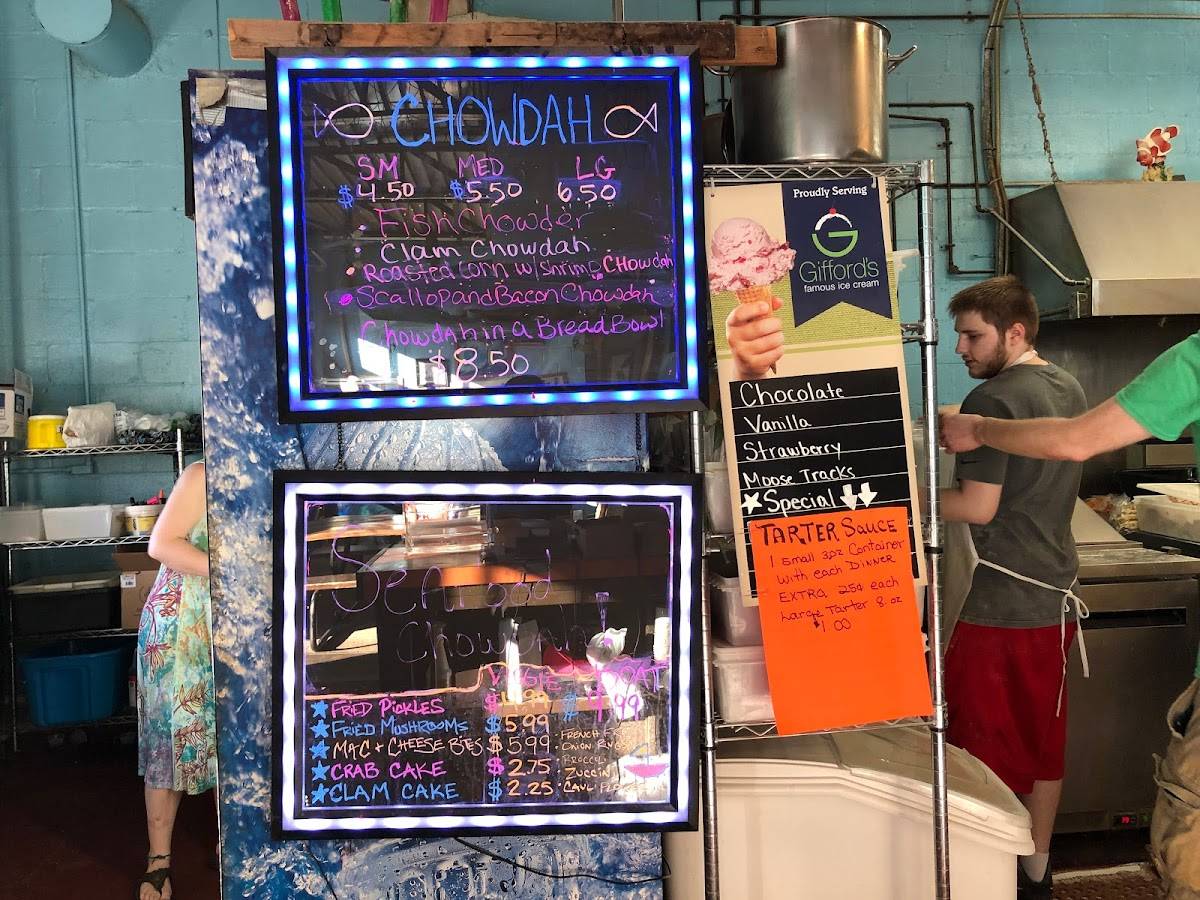 CHOWDAH
SM MED LG
$4.50 $5.50 6.50
• Fish Chowder
• Clam Chowdah
• Roasted Corn w/ Shrimp CHOwdah
• Scallop and Bacon Chowdah
Chowdah in a Bread Bowl
$8.50
Seafood
Chowdah
VEGGIE BOAT
$ 4.99
★ FRIED PICKLES $4.99
★ FRIED MUSHROOMS $5.99
★ MAC + CHEESE BITES $5.99
★ CRAB CAKE $2.75
★ CLAM CAKE $2.25
FRENCH
ONION RINGS
BROCCLI
ZUCCINI
Proudly Serving
G
Gifford's
famous ice cream
Chocolate
Vanilla
Strawberry
Moose Tracks
★ Special
TARTER SAUCE
1 small 3oz Container
with each DINNER
EXTRA 25¢ each
Large Tarter 8.oz
$1.00